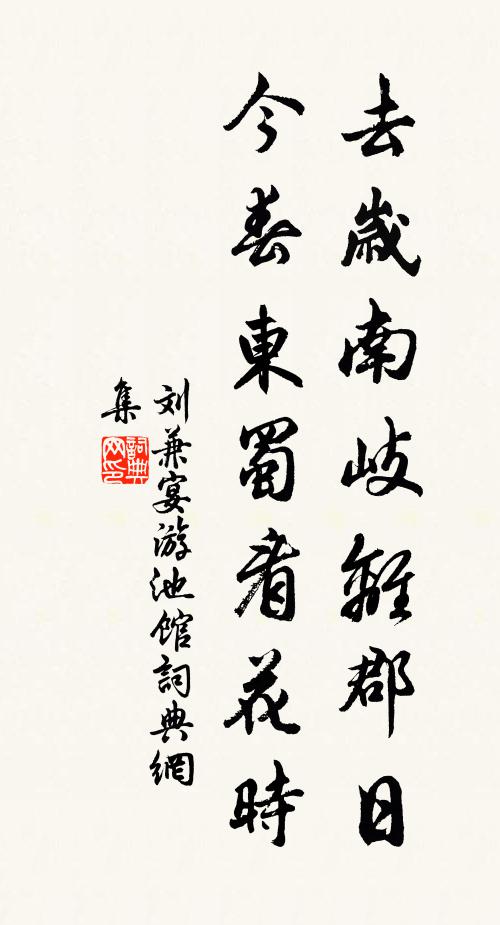 去歲南岐離郡日
今春東蜀看花時
刘兼宴游池馆詞典網
集
詞典
网印